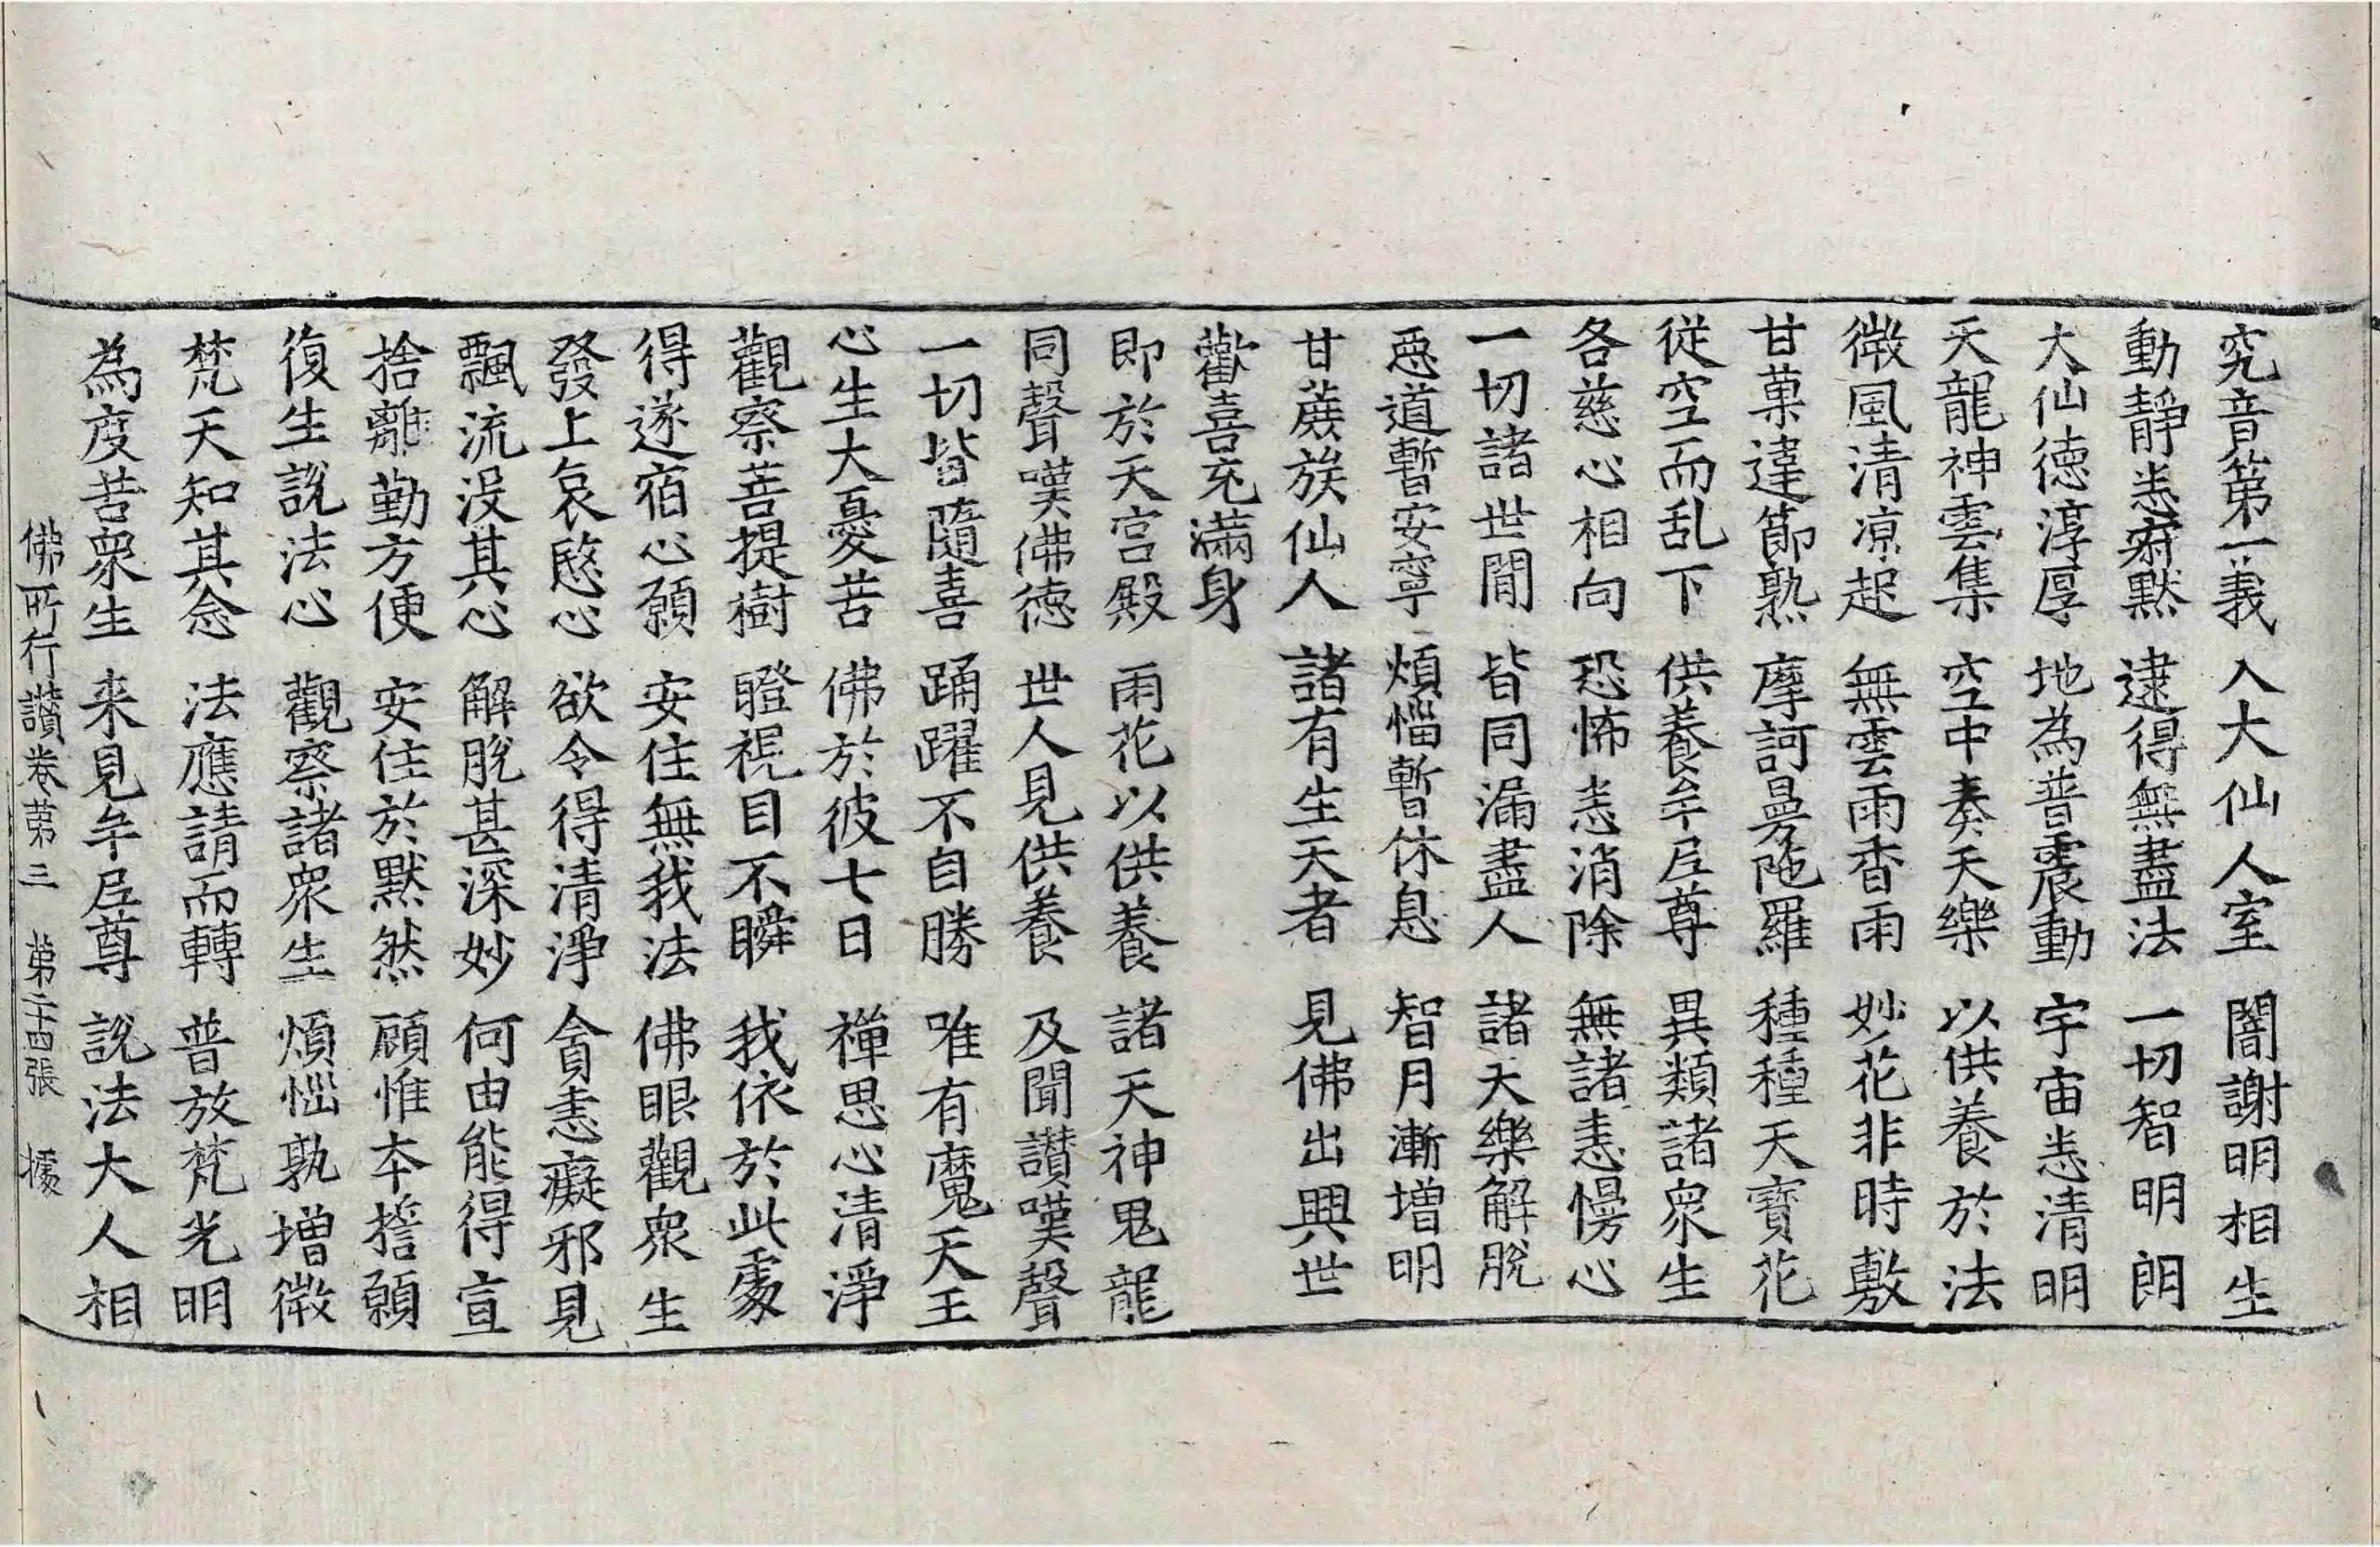 究音第一義 入大仙人室 闇謝明相生
動靜悉寂默 逮得無盡法 一切智明朗
大仙德淳厚 地為普震動 宇宙悉清明
天龍神雲集 空中奏天樂 以供養於法
微風清凉起 無雲雨香雨 妙花非時敷
甘菓違節熟 摩訶曼陁羅 種種天寶花
從空而乱下 供養牟尼尊 異類諸衆生
各慈心相向 恐怖悉消除 無諸恚慢心
一切諸世間 皆同漏盡人 諸天樂解脫
惡道暫安寧 煩惱暫休息 智月漸增明
甘蔗族仙人 諸有生天者 見佛出興世
歡喜充滿身
即於天宮殿 雨花以供養 諸天神鬼龍
同聲嘆佛德 世人見供養 及聞讃嘆聲
一切皆隨喜 踊躍不自勝 唯有魔天王
心生大憂苦 佛於彼七日 禪思心清淨
觀察菩提樹 瞪視目不瞬 我依於此處
得遂宿心願 安住無我法 佛眼觀衆生
發上哀愍心 欲令得清淨 貪恚癡邪見
飄流沒其心 解脫甚深妙 何由能得宣
捨離勤方便 安住於默然 顧惟本誓願
復生說法心 觀察諸衆生 煩惱孰增微
梵天知其念 法應請而轉 普放梵光明
為度苦衆生 来見牟尼尊 說法大人相
佛所行讃卷第三 第二十四張 據